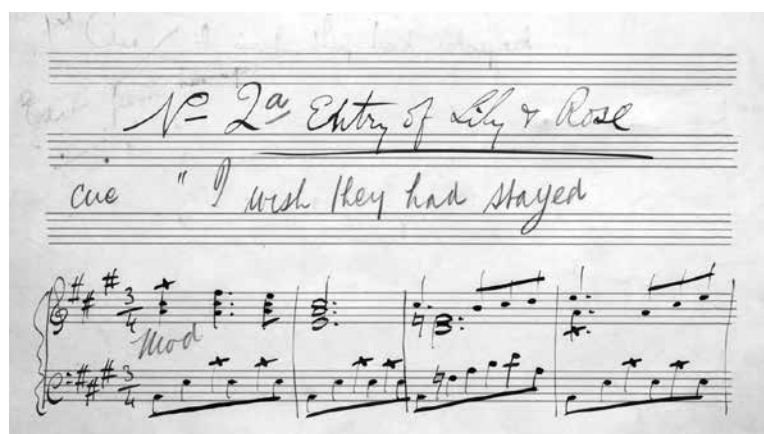 No 2a Entry of Lily & Rose
cue " I wish they had stayed
3
4
Mod
3
4